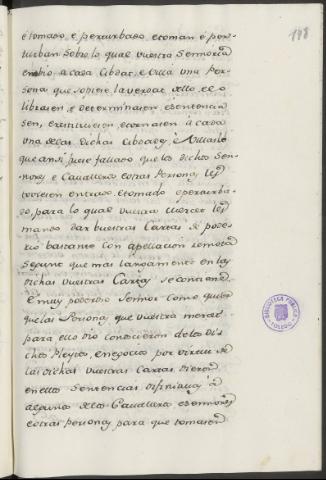 198
è tomado, è perturbado, e toman è per-
turban sobre lo qual vuestra Sennoria
embió, a cada Cibdat, e Villa una Per-
sona, que sopiese la verdat dello, è lo
librasen, e determinasen, e sentencia
sen, e restituiesen, e tornasen, à cada
una de las dichas Cibdades, è Villas lo
que ansi fuese fallado, que los dichos Sen-
nores, e Cavalleros, e otras Personas, les
toviesen entrado, e tomado, e perturba-
do, para lo qual vuestra Merced les
mando dar vuestras Cartas de pode-
rio bastante con apelacion remota
segunt que mas largamente en las
dichas vuestras Cartas se contiene.
E muy poderoso Sennor como quier
que las Personas, que vuestra merced
para ello dio conoscieron de los di-
chos Pleytos, e negocios por virtud de
las dichas vuestras Cartas dieron
en ellos Sentencias difinitivas, è
algunos de los Cavalleros, e Sennores,
e otras personas para que tomasen
BIBLIOTECA PUBLICA
TOLEDO